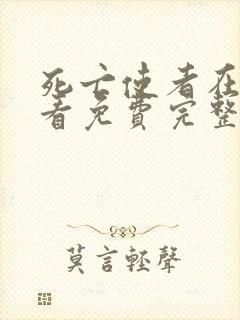 死亡使者在
看免費完整
莫言輕聲